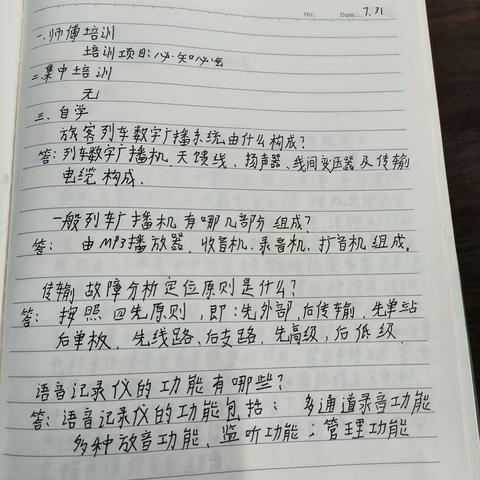 No. Date. 7.31
一.师傅培训
培训项目:必知必会
二.集中培训
无
三.自学
旅客列车数字广播系统由什么构成?
答:列车数字广播机、天馈线、扬声器、线间变压器及传输
电缆构成.
一般列车广播机有哪几部分组成?
答: 由MP3播放器、收音机.录音机、扩音机组成。
传输故障分析定位原则是什么?
答:按照四先原则,即:先外部、后传输、先单站
后单板、先线路、后支路、先高级,后低级.
语音记录仪的功能有哪些?
答:语音记录仪的功能包括: 多通道录音功能
多种放音功能、监听功能;管理功能